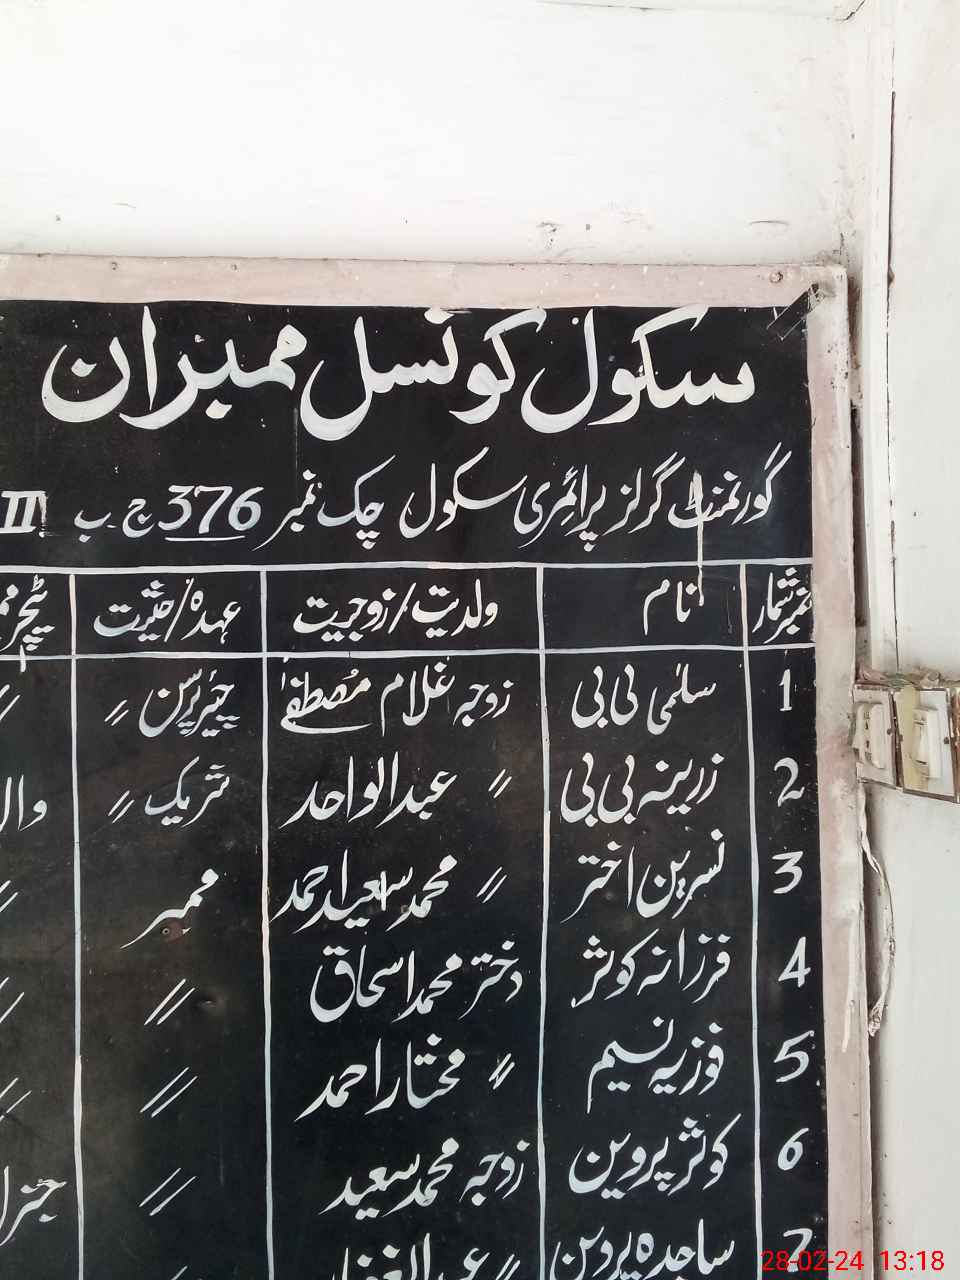 سکول کونسل ممبران
گورنمنٹ گرلز پرائمری سکول چک نمبر 376 ج ب II
نمبر شمار نام ولدیت/زوجیت عہدہ/حثیت ٹیچر
1 سلمٰی بی بی زوجہ غلام مصطفےٰ چیئرپرسن 〃
2 زرینہ بی بی 〃 عبدالواحد شریک 〃 وال
3 نسرین اختر 〃 محمد سعید احمد ممبر 〃
4 فرزانہ کوثر دختر محمد اسحاق 〃 〃
5 فوزیہ نسیم 〃 مختار احمد 〃 〃
6 کوثر پروین زوجہ محمد سعید 〃 جنرل
7 ساجدہ پروین 〃
28-02-24 13:18